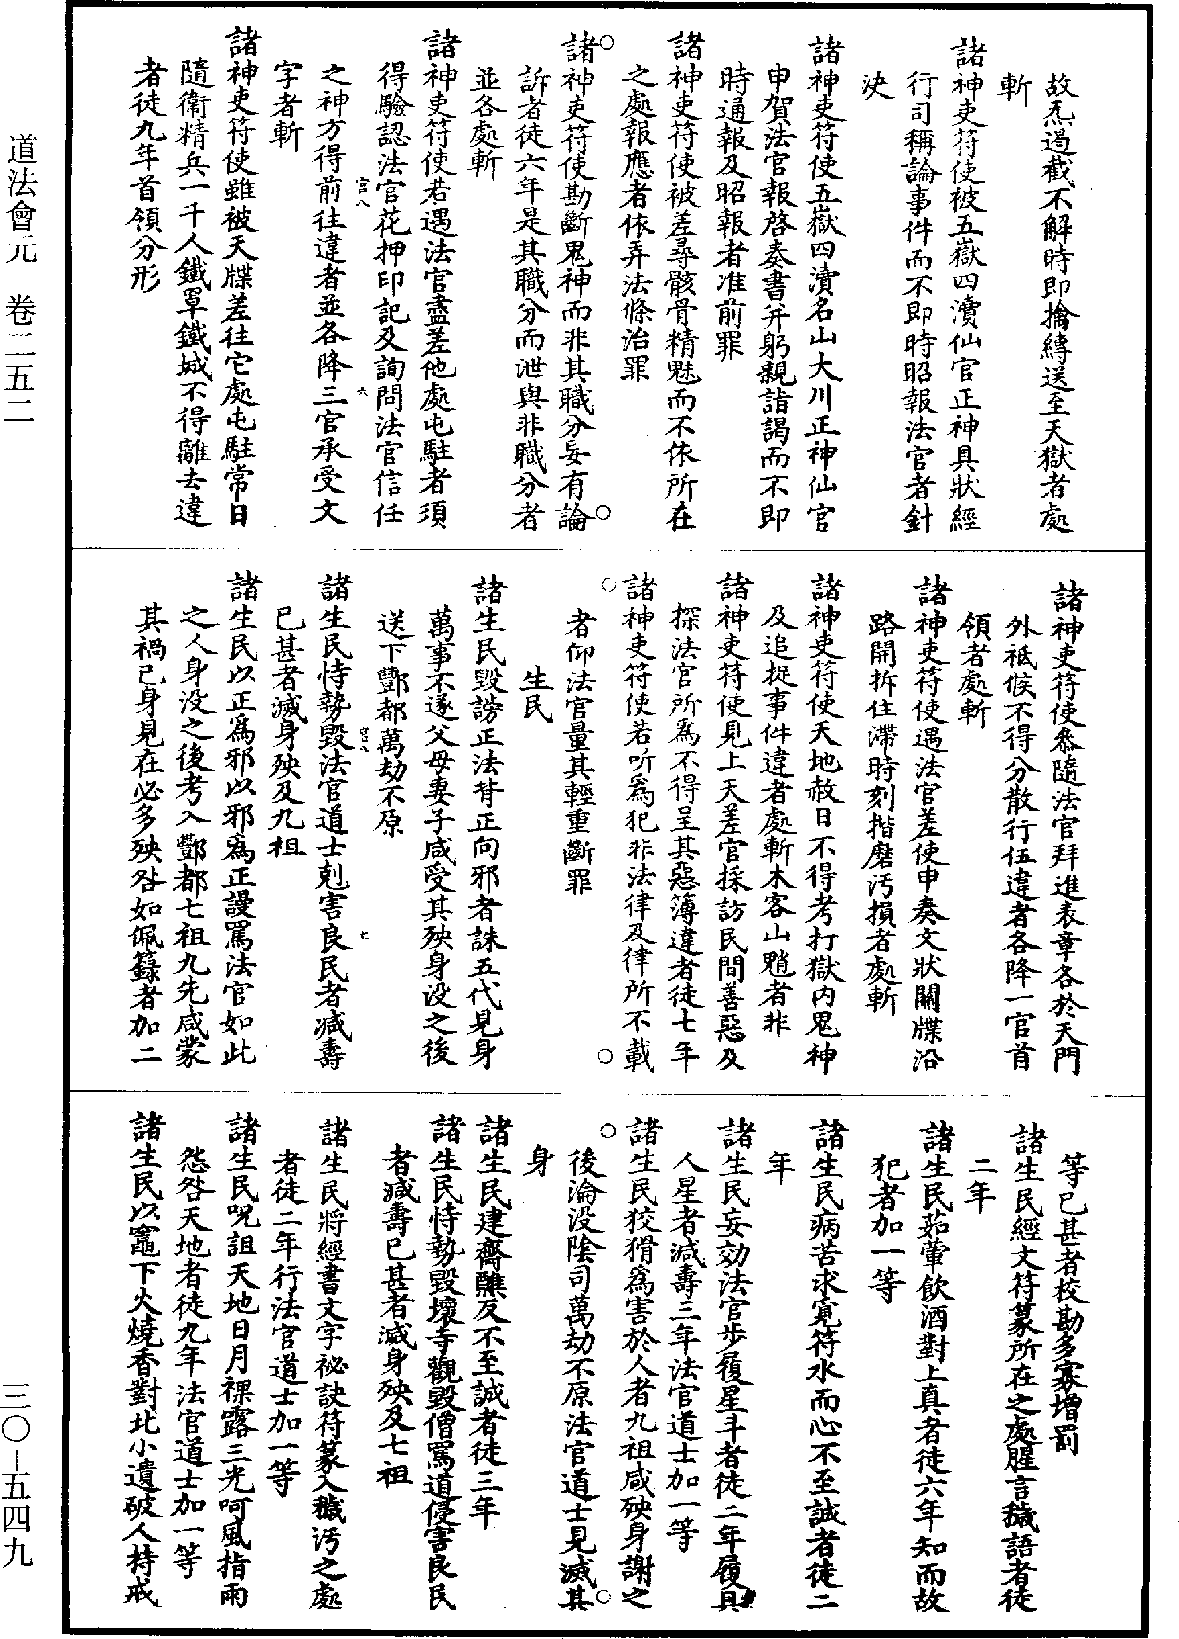 道法會元　卷二五二
故炁過截不解時即擒縛送至天獄者處
斬
諸神吏符使被五嶽四瀆仙官正神具狀經
行司稱論事件而不即時昭報法官者針
決
諸神吏符使五嶽四瀆名山大川正神仙官
申賀法官報啓奏書并躬親詣謁而不即
時通報及昭報者准前罪
諸神吏符使被差尋骸骨精魅而不依所在
之處報應者依弄法條治罪
諸神吏符使勘斷鬼神而非其職分妄有論
訴者徒六年是其職分而泄與非職分者
並各處斬
諸神吏符使若遇法官盡差他處屯駐者須
得驗認法官花押印記及詢問法官信任
之神方得前往違者並各降三官承受文
字者斬
諸神吏符使雖被天牒差往它處屯駐常日
隨衛精兵一千人鐵罩鐵城不得離去違
者徒九年首領分形
諸神吏符使叅隨法官拜進表章各於天門
外祇候不得分散行伍違者各降一官首
領者處斬
諸神吏符使遇法官差使申奏文狀關牒沿
路開拆住滯時刻揩磨污損者處斬
諸神吏符使天地赦日不得考打獄內鬼神
及追捉事件違者處斬木客山魈者非
諸神吏符使見上天差官採訪民間善惡及
探法官所為不得呈其惡簿違者徒七年
諸神吏符使若所為犯非法律及律所不載
者仰法官量其輕重斷罪
生民
諸生民毀謗正法背正向邪者誅五代見身
萬事不遂父母妻子咸受其殃身没之後
送下酆都萬劫不原
諸生民恃勢毀法官道士剋害良民者减壽
已甚者滅身殃及九祖
諸生民以正為邪以邪為正謾罵法官如此
之人身没之後考入酆都七祖九先咸蒙
其禍已身見在必多殃咎如佩籙者加二
等已甚者校勘多寡增罰
諸生民經文符篆所在之處腥言穢語者徒
二年
諸生民茹葷飲酒對上真者徒六年知而故
犯者加一等
諸生民病苦求覓符水而心不至誠者徒二
年
諸生民妄効法官步履星斗者徒二年履具
人星者减壽三年法官道士加一等
諸生民狡猾為害於人者九祖咸殃身謝之
後淪没陰司萬劫不原法官道士見滅其
身
諸生民建齋醮及不至誠者徒三年
諸生民恃勢毀壞寺觀毀僧罵道侵害良民
者减壽已甚者滅身殃及七祖
諸生民將經書文字祕訣符篆入穢污之處
者徒二年行法官道士加一等
諸生民呪詛天地日月裸露三光呵風指雨
怨咎天地者徒九年法官道士加一等
諸生民以竈下火燒香對北小遺破人持戒
三〇－五四九